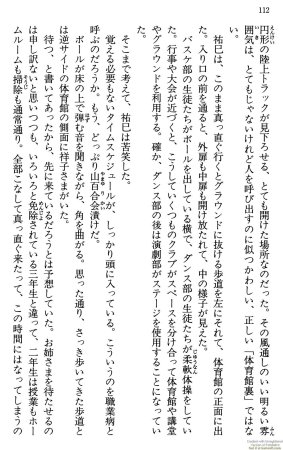 112
円形の陸上トラックが見下ろせる、とても開けた場所なのだった。その風通しのいい明るい雰
囲気は、とてもじゃないけれど人を呼び出すのに似つかわしい、正しい「体育館裏」ではな
い。
祐巳は、このまま真っ直ぐ行くとグラウンドに抜ける歩道を左にそれて、体育館の正面に出
た。入り口の前を通ると、外扉も中扉も開け放たれて、中の様子が見えた。
バスケ部の生徒たちがボールを出している横で、ダンス部の生徒たちが柔軟体操をしてい
た。行事や大会が近づくと、こうしていくつものクラブがスペースを分け合って体育館や講堂
やグラウンドを利用する。確か、ダンス部の後は演劇部がステージを使用することになってい
る。
そこまで考えて、祐巳は苦笑した。
覚える必要もないタイムスケジュールが、しっかり頭に入っている。こういうのを職業病と
呼ぶのだろうか。もう、どっぷり山百合会漬けだ。
ボールが床の上で弾む音を聞きながら、角を曲がる。思った通り、さっき歩いてきた歩道と
は逆サイドの体育館の側面に祥子さまがいた。
待つ、と書いてあったから、先に来ているだろうとは予想していた。お姉さまを待たせるの
は申し訳ないと思いつつも、いろいろと免除されている三年生と違って、二年生は授業もホー
ムルームも掃除も通常通り。全部こなして真っ直ぐ来たって、この時間にはなってしまうの